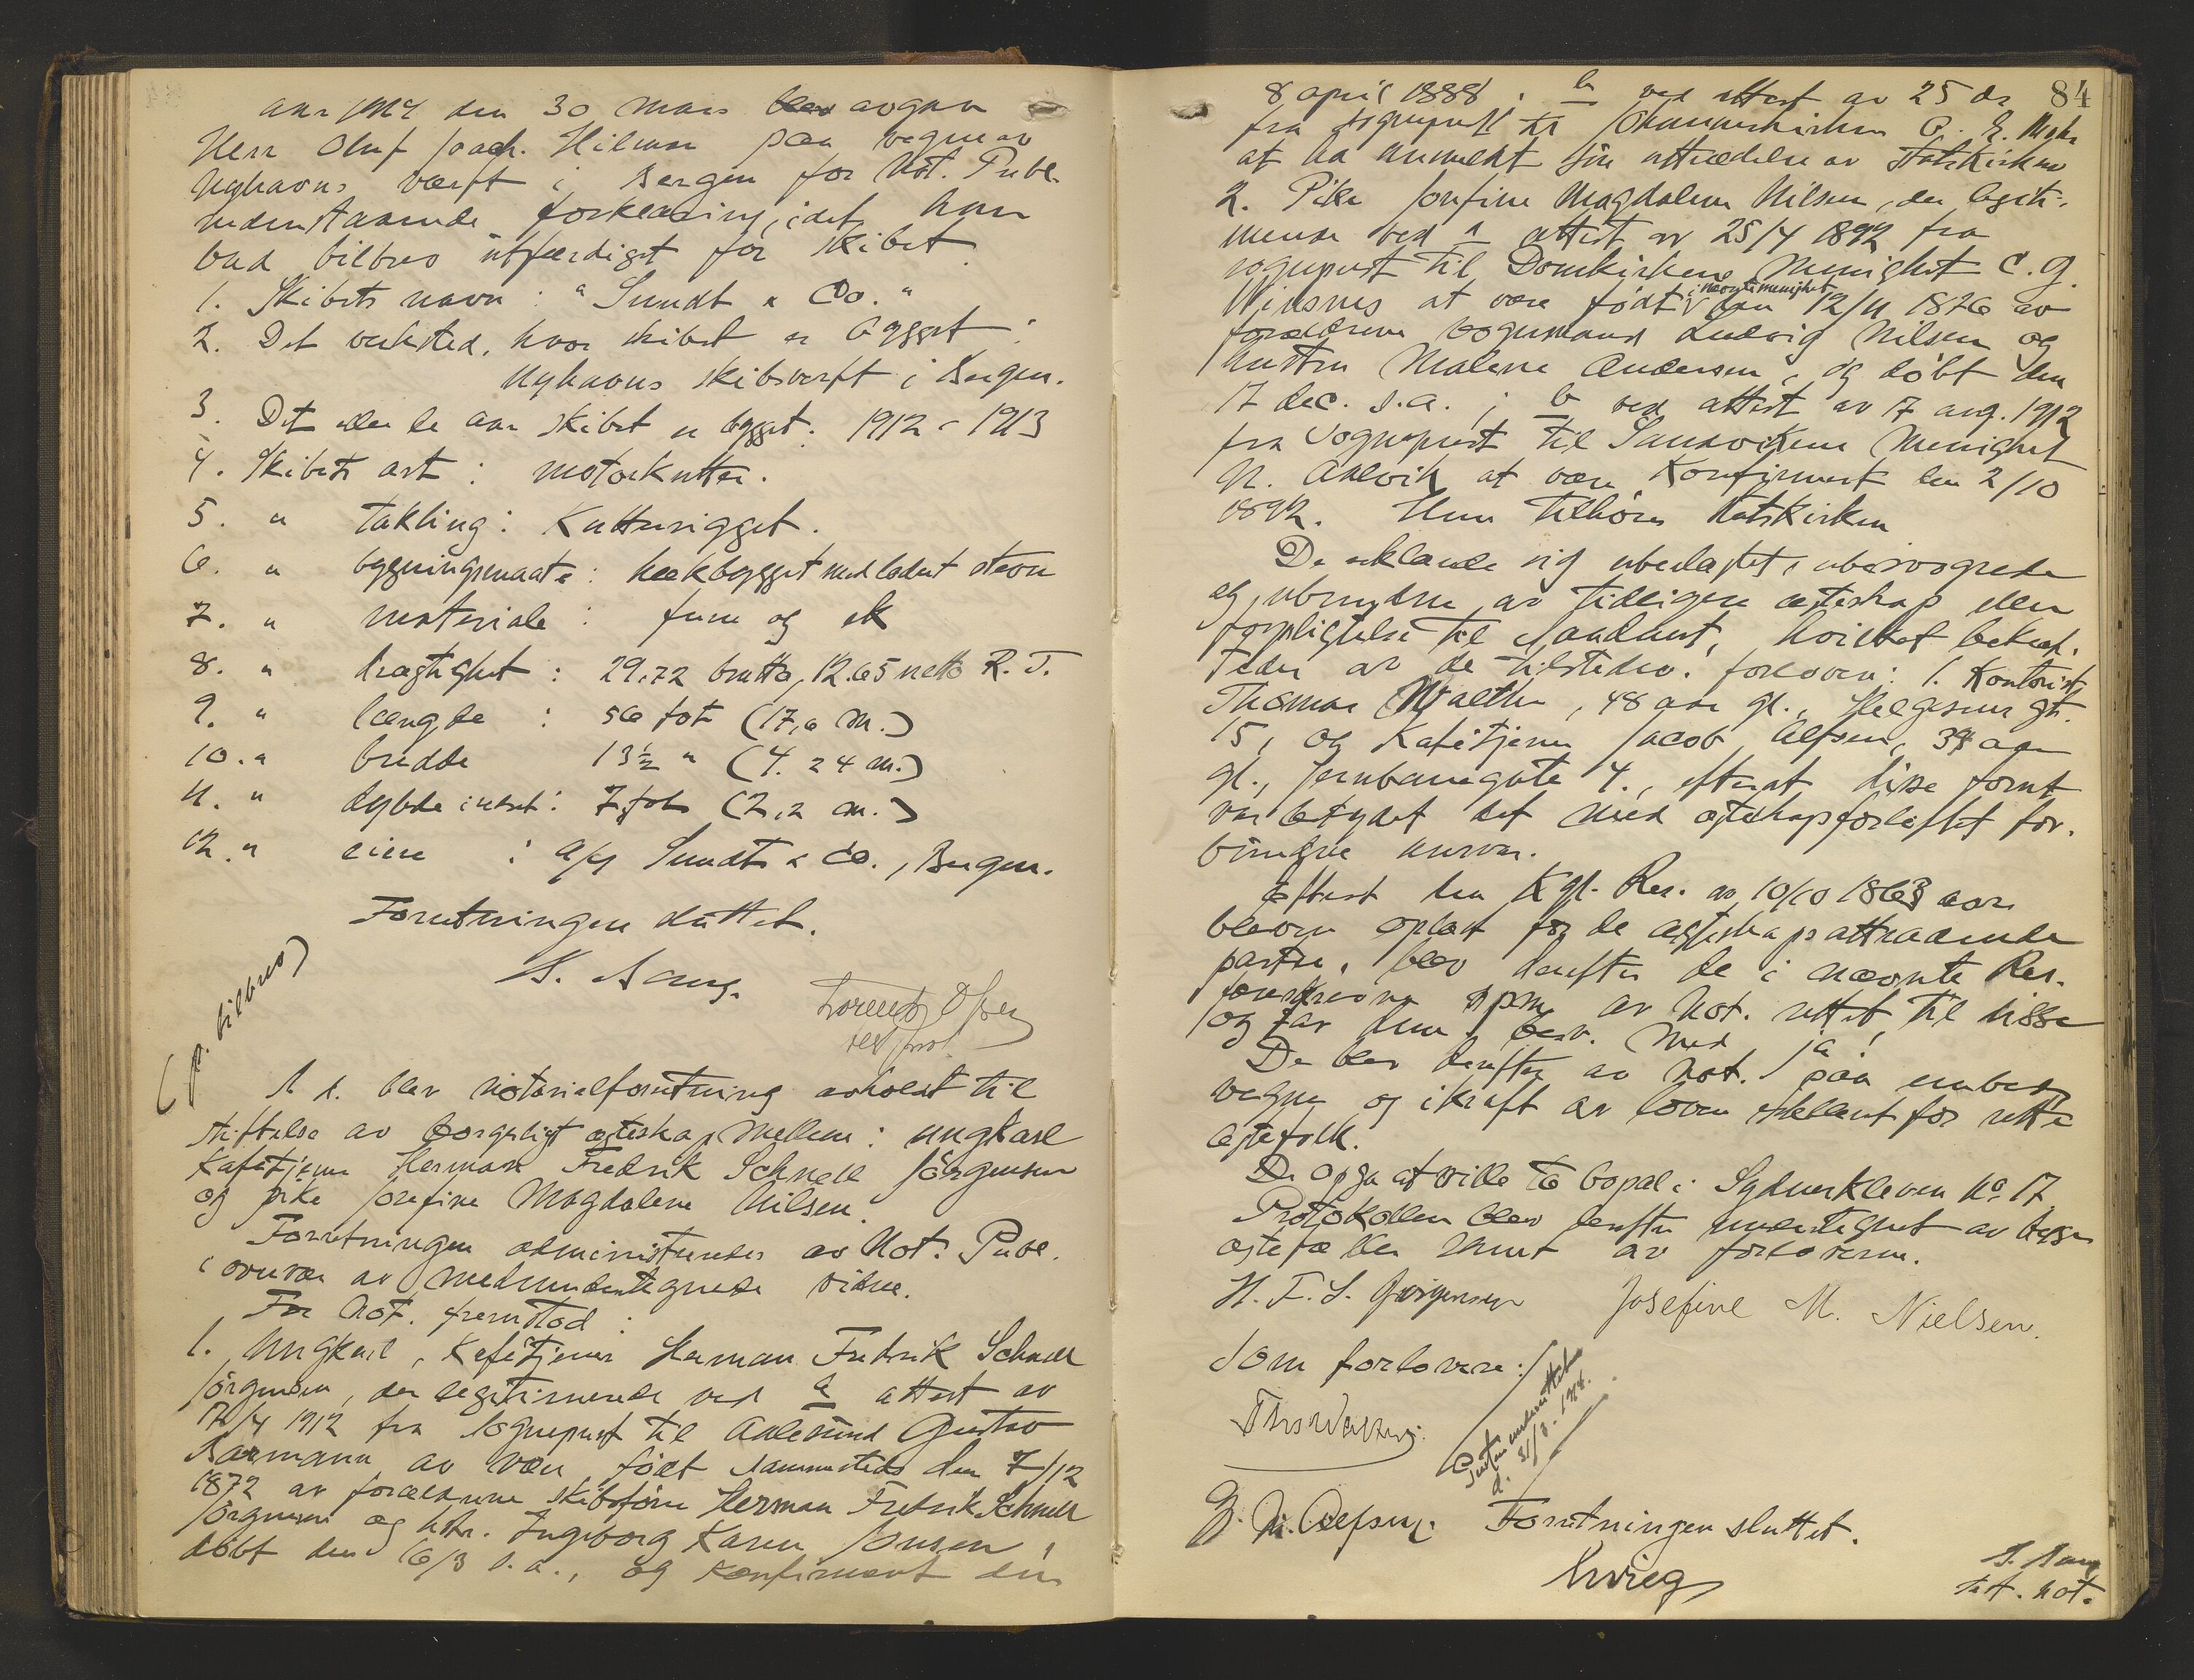 aar 1914 den 30 mars blev avgav
Herr Oluf Joach. Hilmar paa vegne av
Nyhavns værft i Bergen for Not. Publ.
nedenstaaende forklaring, idet han
bad bilbrev utfærdiget for skibet.
1. Skibets navn: "Sundt & Co."
2. Det verksted, hvor skibet er bygget:
Nyhavns skibsverft i Bergen.
3. Det eller de aar skibet er bygget: 1912 - 1913
4. Skibets art: motorkutter.
5. " takling: Kutterrigget.
6. " bygningsmaate: hækbygget med ladent stevn
7. " materiale: furu og ek
8. " drægtighet: 29.72 brutto, 12.65 netto R. T.
9. " længde: 56 fot (17,6 m.)
10. " bredde 13½ " (4.24 m.)
11. " dybde i rumet: 7 fot (2,2 m.)
12. " eiere: A/S Sundt & Co., Bergen.
Forretningen sluttet.
(p. bilbrev)
A. d. blev notarialforretning avholdt til
stiftelse av borgerligt egteskap mellem: ungkarl
Kafétjener Herman Fredrik Schnell Jörgensen
og pike Josefine Magdalene Nilsen.
Forretningen administreredes av Not. Publ.
i overvær av medundertegnede vidne.
For Not. fremstod:
1. Ungkarl, Kafétjener Herman Fredrik Schnell
Jörgensen, der legitimerede ved a attest av
12/4 1912 fra Sogneprest til Aalesund Gustav
Barmann av være født sammesteds den 7/12
1872 av forældrene skibsfører Herman Fredrik Schnell
Jörgensen og hstr. Ingeborg Karen Jonsen,
döbt den 16/3 s. a., og konfirmert den
84
8 april 1888; b ved attest av 25 ds
fra sogneprest til Johanneskirken
at ha anmeldt sin uttrædelse av Statskirken
2. Pike Josefine Magdalene Nilsen, der legiti-
merede ved a attest av 25/4 1892 fra
sogneprest til Domkirkens Menighet C. G.
at være født i nævnte menighet den 12/11 1876 av
forældrene vognmand Ludvig Nilsen og
hustru Malene Andersen, og döbt den
17 dec. s. a.; b ved attest av 17 aug. 1912
fra Sogneprest til Sandvikens Menighet
N. Aalvik at være Konfirmert den 2/10
1892. Hun tilhörer Statskirken
De erklærede sig ubeslægtet, ubesvogrede
og ubundne av tidligere egteskap eller
forpligtelse til saadant, hvilket bekræf-
tedes av de tilstedev. forlovere: 1. Kontorist
Thomas Walther, 48 aar gl., Helgesens gt.
15, og Kafétjener Jacob Alfsen, 38 aar
gl., Jernbanegate 4., efterat disse foruts
var betydet det med egteskapsforløftet for-
bundne ansvar.
Efterat den Kgl. Res. av 10/10 1863 var
bleven oplæst for de egteskapsattraaende
parter, blev derefter de i nævnte Res.
foreskrevne spm. av Not. rettet til disse
og far dem besv. med ja!
De blev derefter av Not. paa embeds
vegne og i kraft av loven erklæret for rette
egtefolk.
De opga at ville ta bopæl i Sydneskleven No 17
Protokollen blev derefter undertegnet av begge
egtefæller samt av forloverne.
H. F. S. Jørgensen Josefine M. Nielsen.
Som forlovere:
Forretningen sluttet.